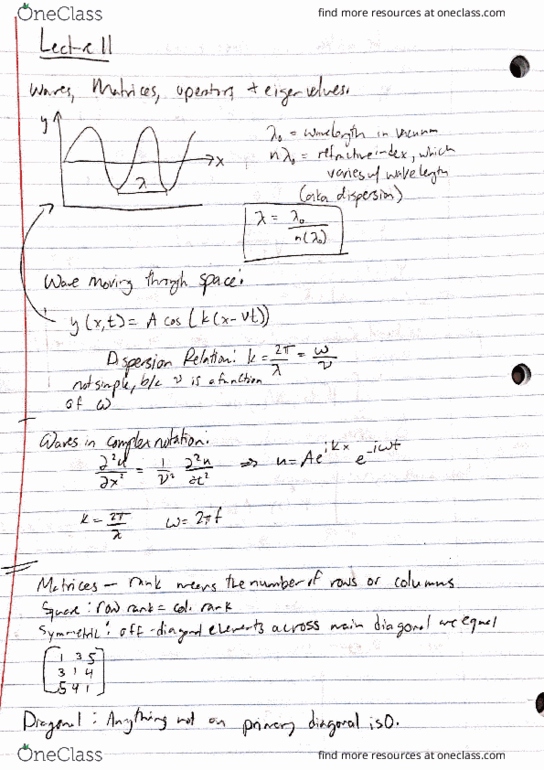 OneClass
find more resources at oneclass.com
Lecture 11
Waves, Matrices, operators + eigenvalues.
y
x
λ
λ₀ = wavelength in vacuum
nλ₀ = refractive index, which
varies w/ wavelength
(aka dispersion)
λ = λ₀ / n(λ₀)
Wave moving through space:
y(x,t) = A cos(k(x-vt))
Dispersion Relation: k = 2π/λ = ω/v
not simple, b/c v is a function
of ω
Waves in complex notation:
∂²u/∂x² = 1/v² ∂²u/∂t² ⇒ u = Ae^{ikx} e^{-iωt}
k = 2π/λ ω = 2πf
Matrices — rank means the number of rows or columns
Square: row rank = col. rank
Symmetric: off-diagonal elements across main diagonal are equal
1 3 5
3 1 4
5 4 1
Diagonal: Anything not on primary diagonal is 0.
OneClass
find more resources at oneclass.com